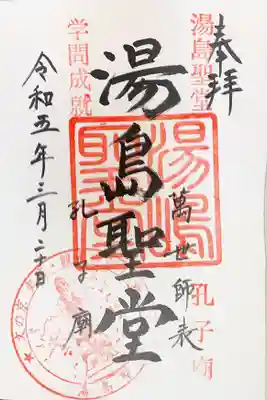 奉拝
湯島聖堂 孔子廟
萬世師表
湯島聖堂
湯島聖堂
孔子廟
学問成就
令和五年三月二十日